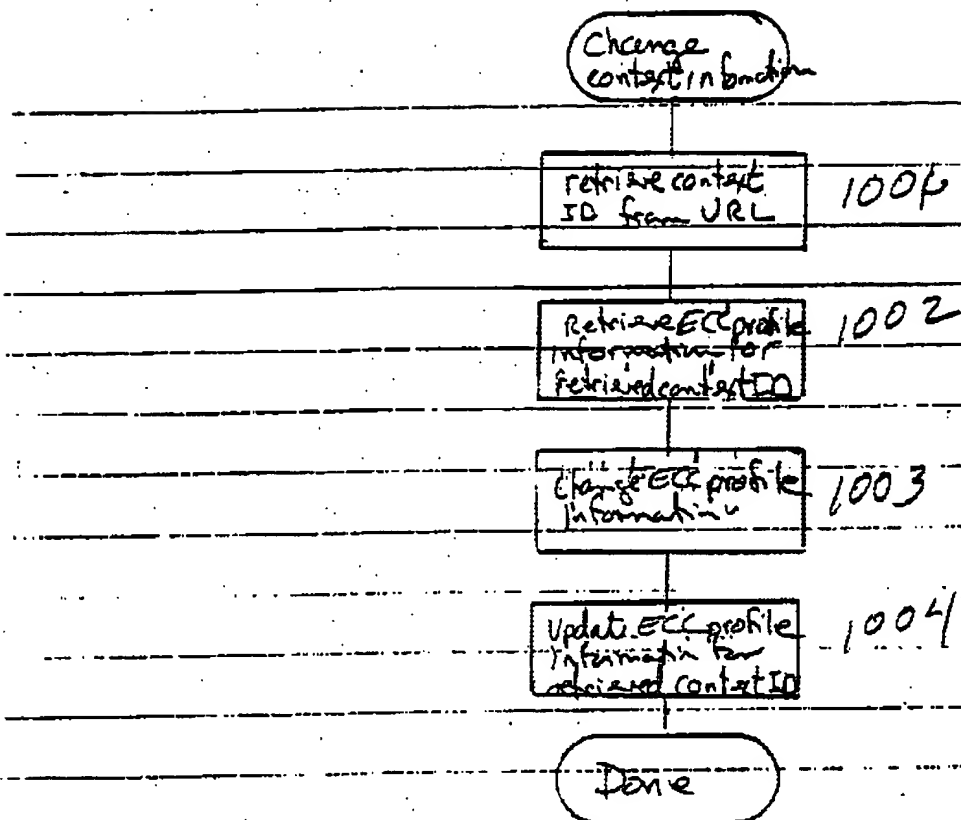 Change
context information
retrieve context
ID from URL
1001
Retrieve ECC profile
information for
retrieved context ID
1002
Change ECC profile
information
1003
Update ECC profile
information for
retrieved context ID
1004
Done